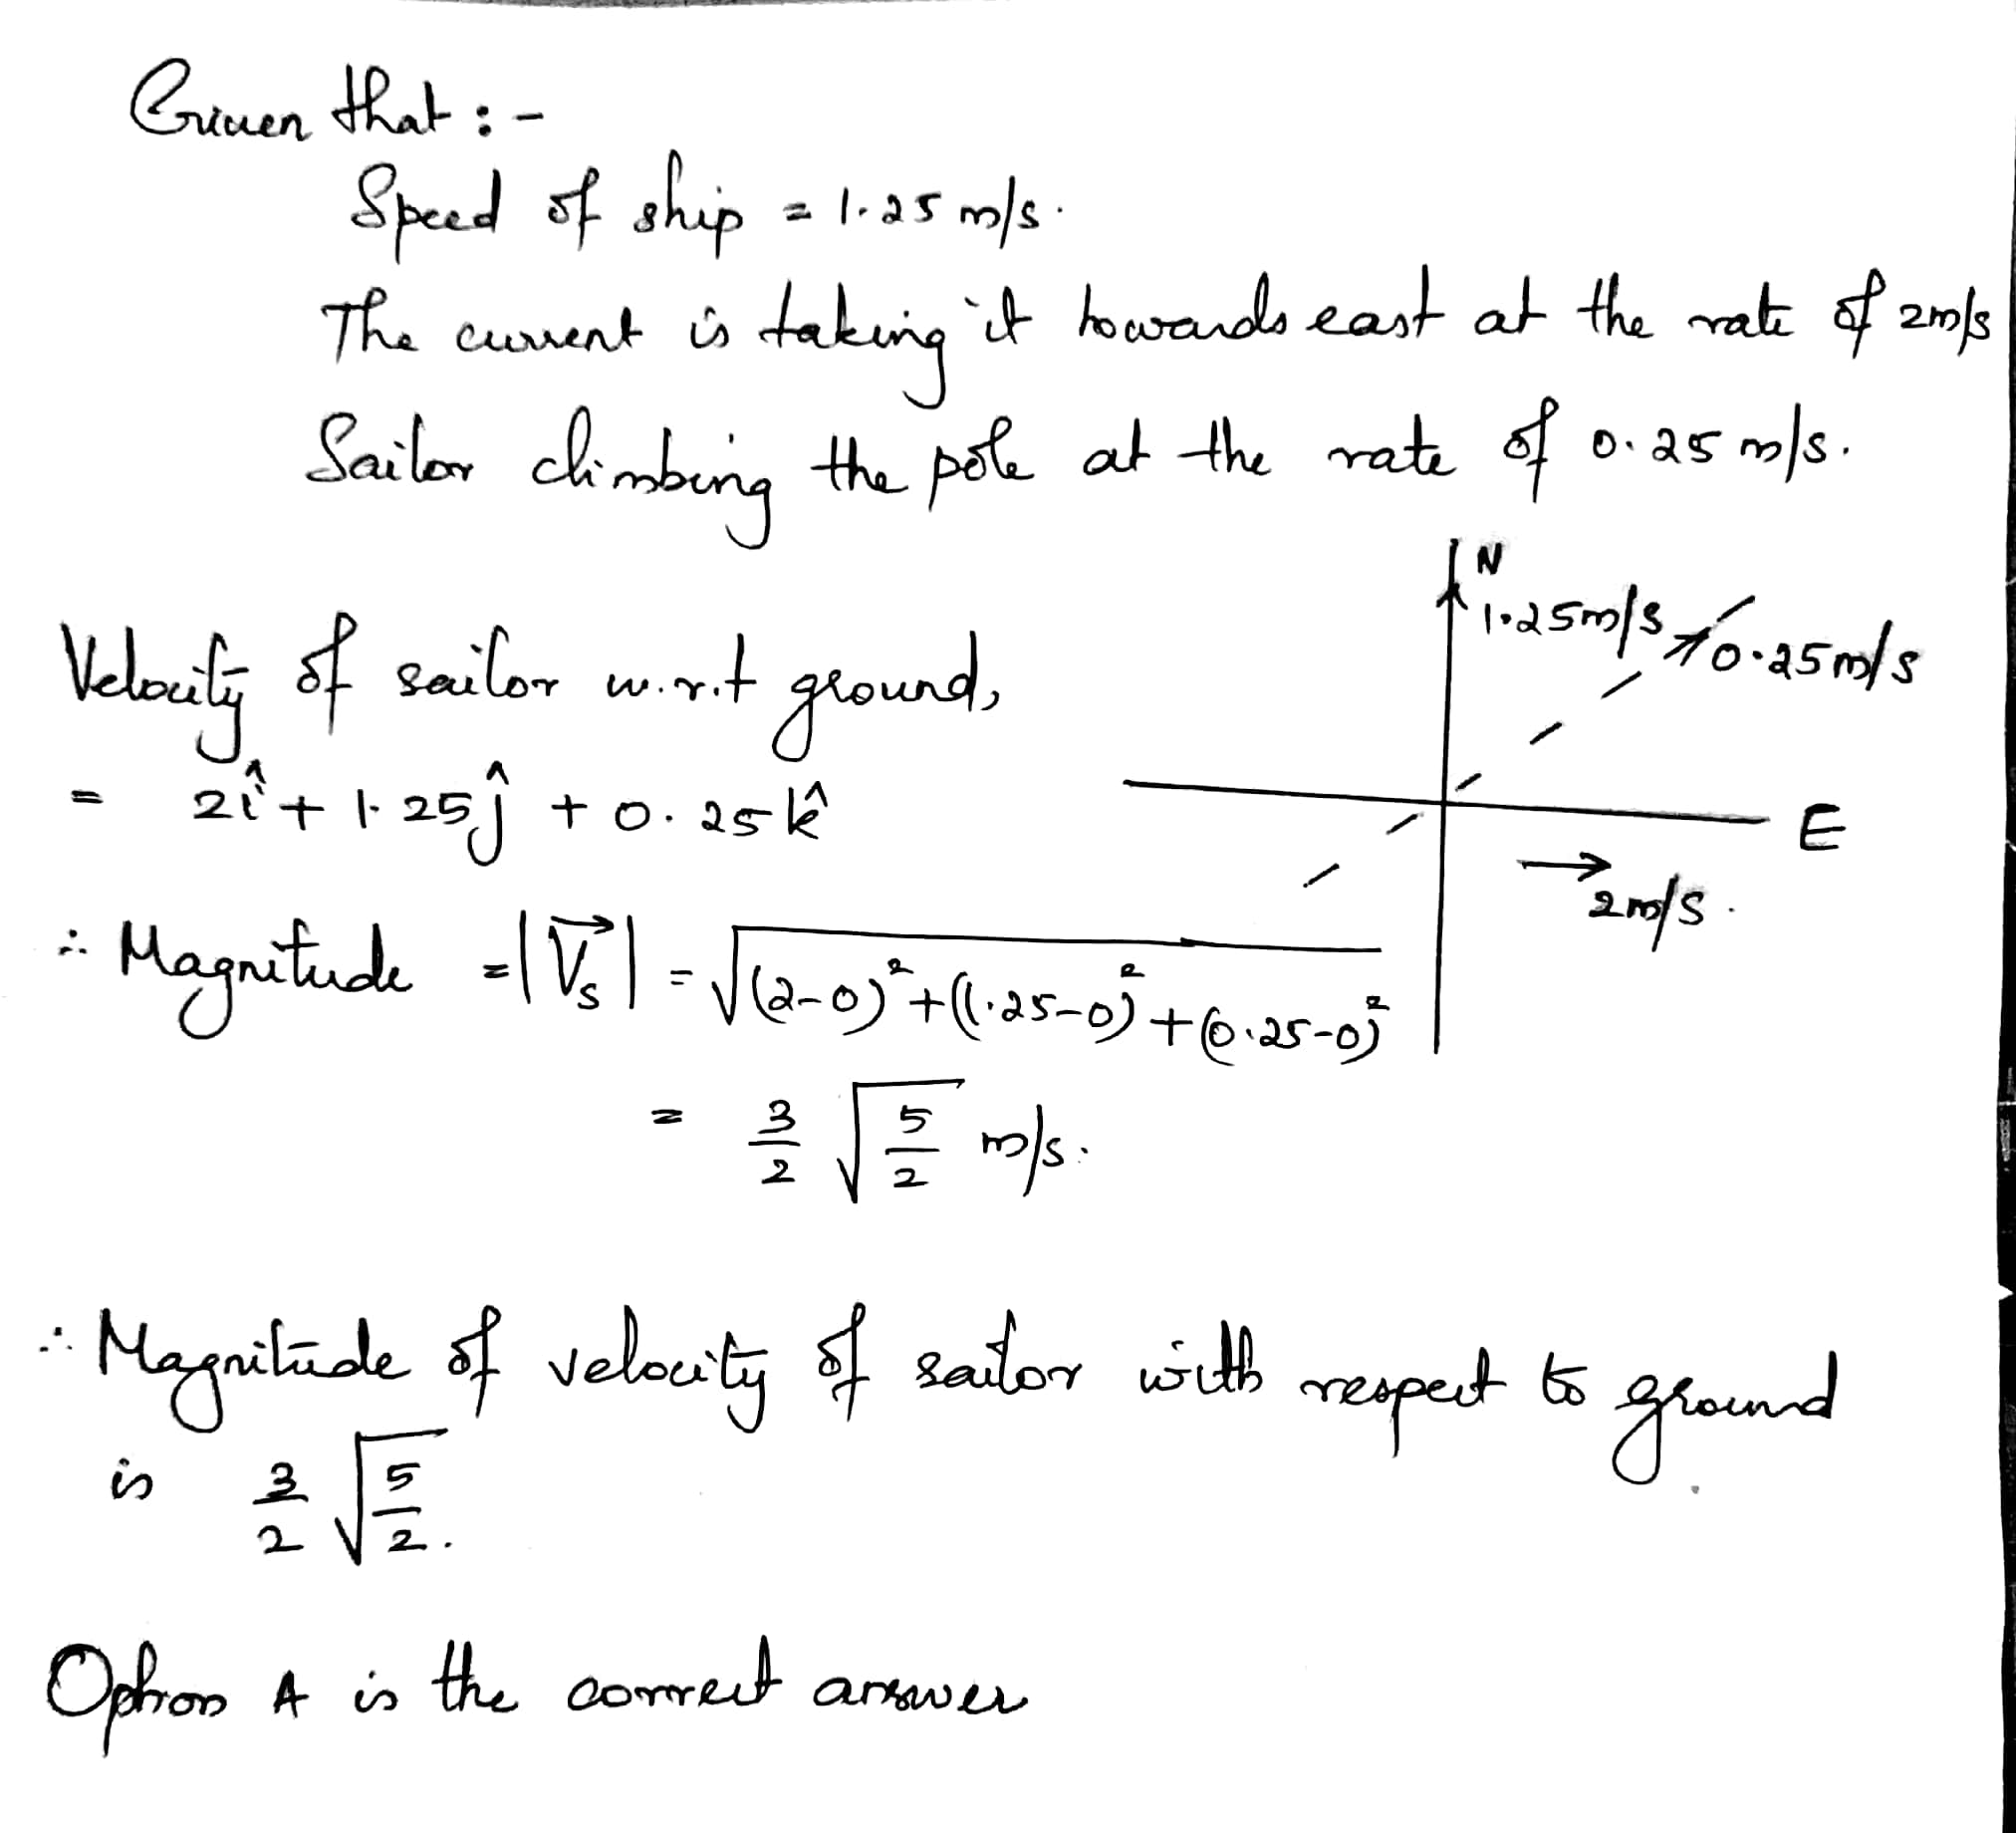 Given that :-
Speed of ship = 1.25 m/s.
The current is taking it towards east at the rate of 2m/s
Sailor climbing the pole at the rate of 0.25 m/s.
N
1.25m/s
0.25m/s
Velocity of sailor w.r.t ground,
= 2î + 1.25ĵ + 0.25k̂
E
2m/s.
∴ Magnitude = |V⃗s| = √((2-0)² + (1.25-0)² + (0.25-0)²)
= 3/2 √(5/2) m/s.
∴ Magnitude of velocity of sailor with respect to ground
is 3/2 √(5/2).
Option A is the correct answer